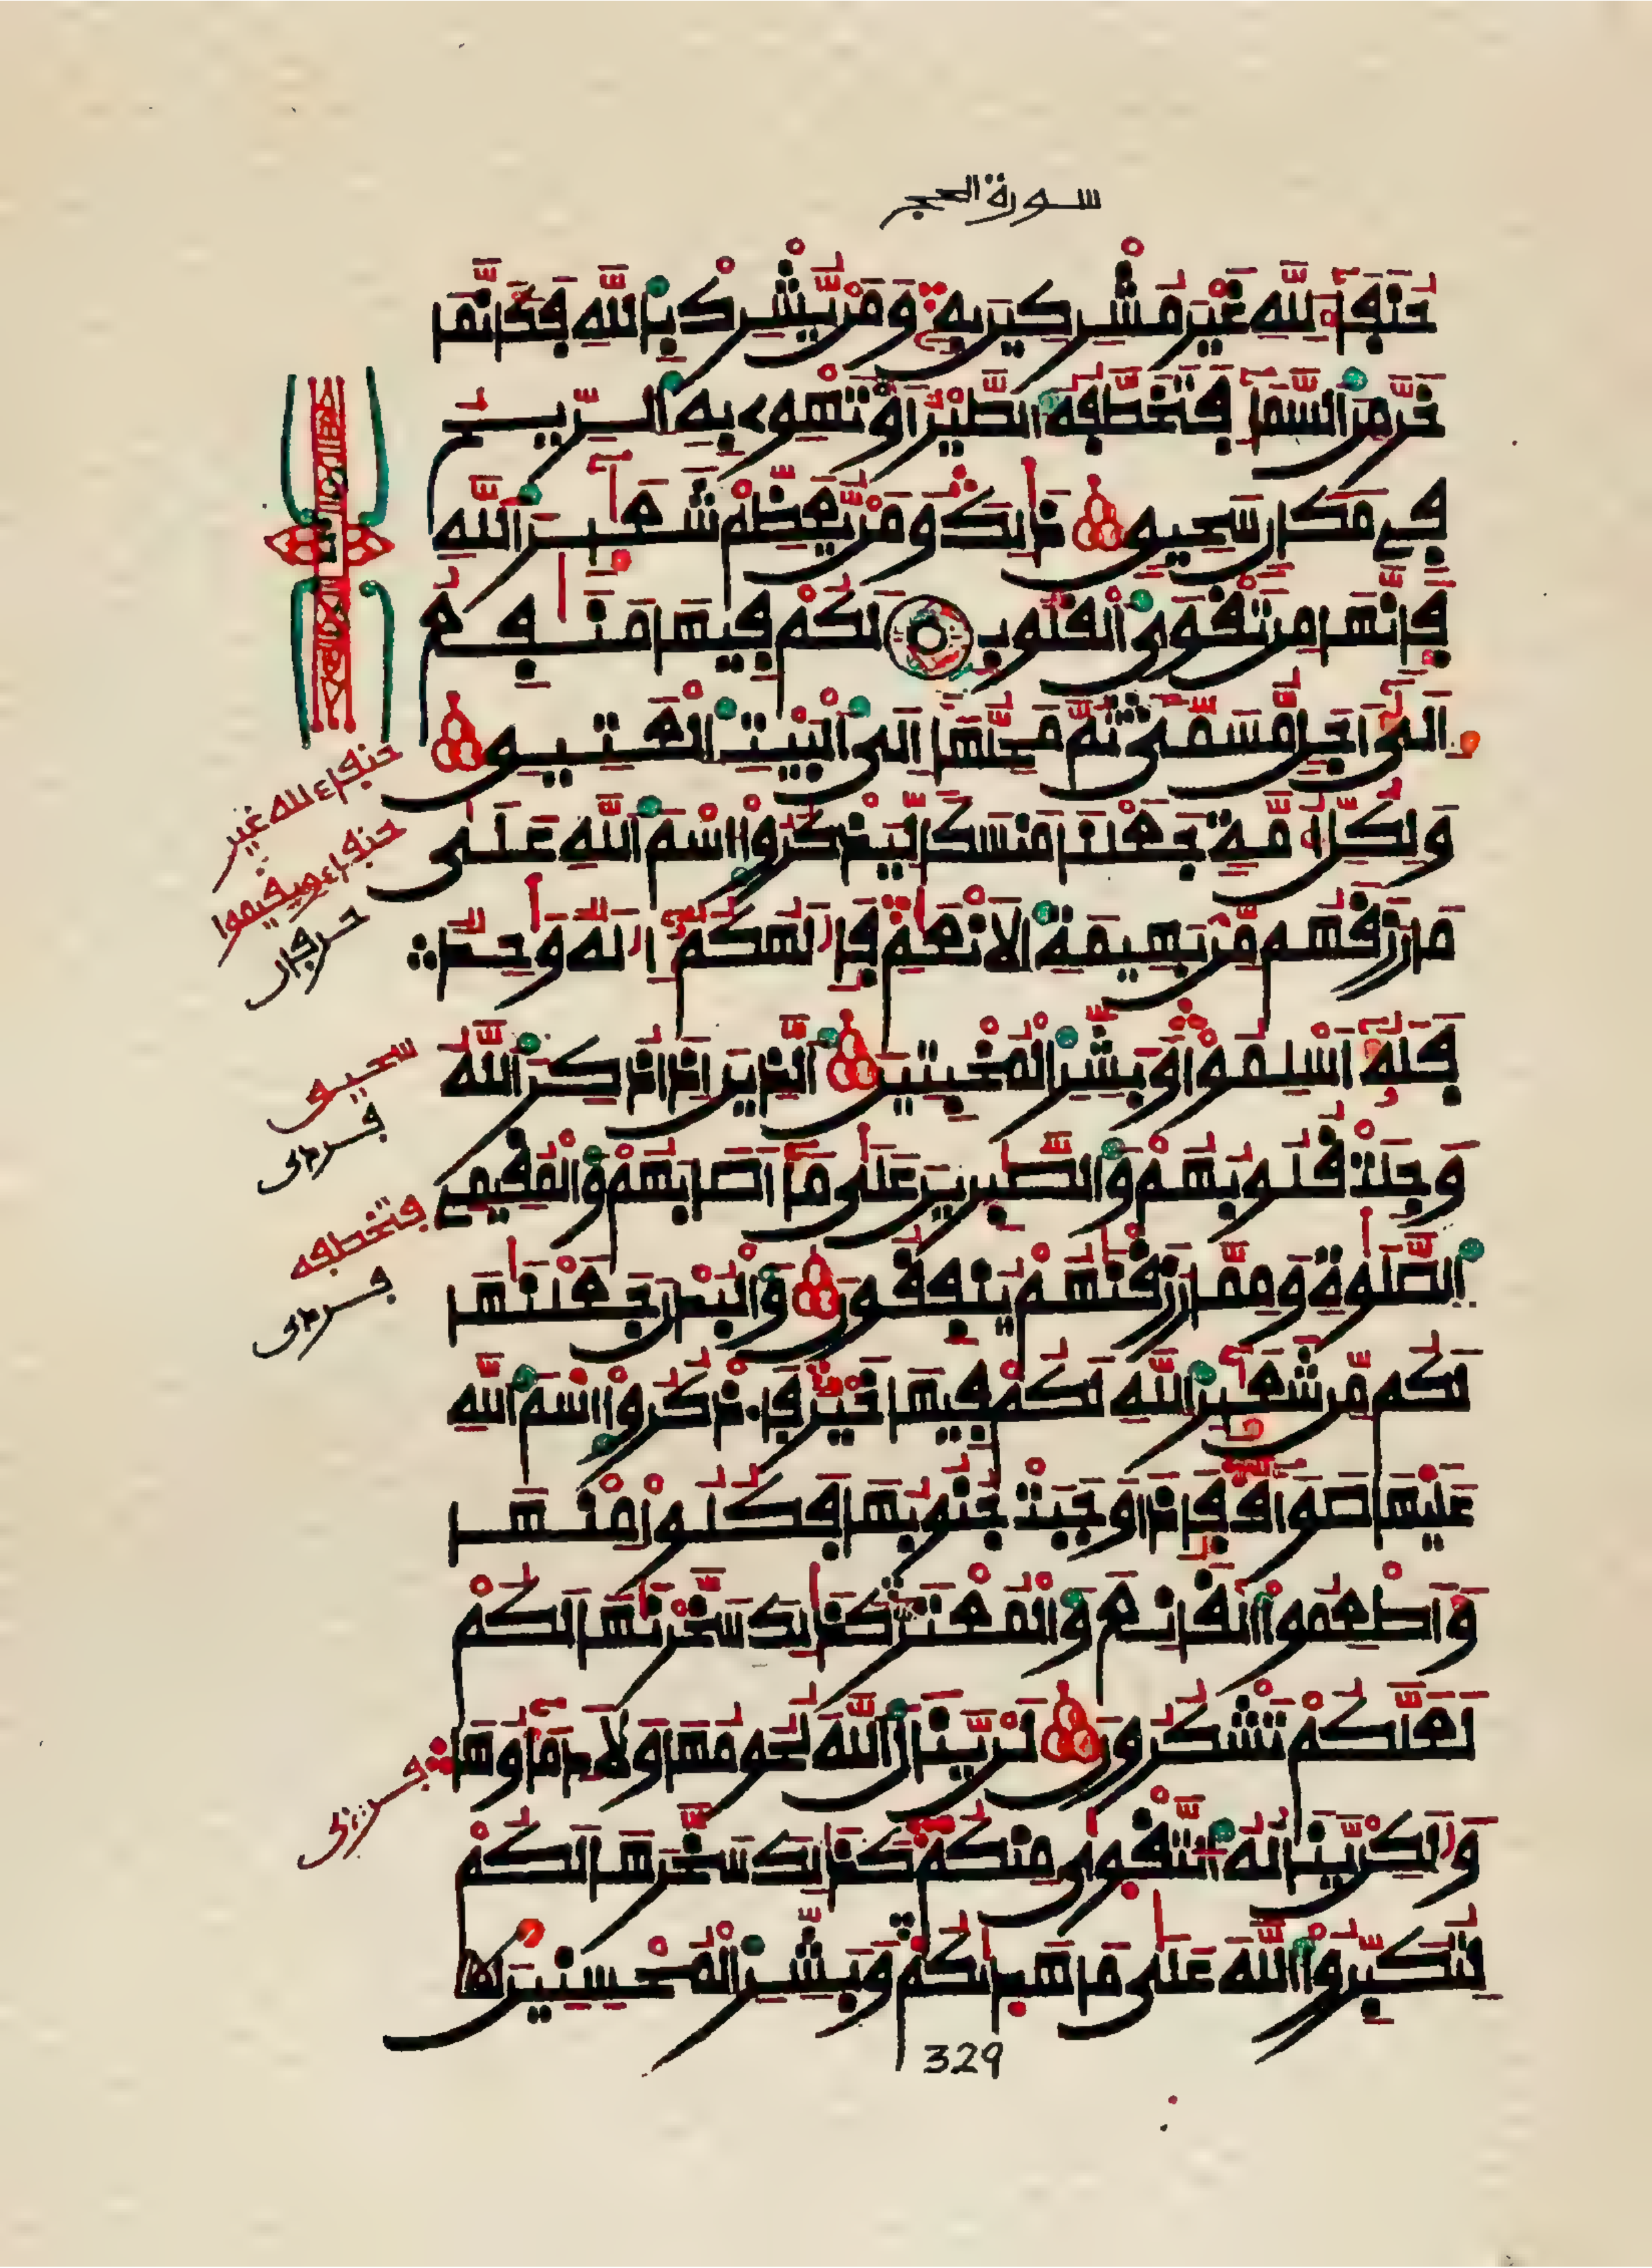 سورة الحج
حُنَفَآءَ لِلَّهِ غَيْرَ مُشْرِكِينَ بِهِۦ وَمَن يُّشْرِكْ بِاللَّهِ فَكَأَنَّمَا
خَرَّ مِنَ السَّمَآءِ فَتَخَطَّفُهُ الطَّيْرُ أَوْ تَهْوِے بِهِ الرِّيحُ
فِے مَكَانٖ سَحِيقٖ ذَٰلِكَ وَمَن يُّعَظِّمْ شَعَٰٓئِرَ اللَّهِ
فَإِنَّهَا مِن تَقْوَى الْقُلُوبِ لَكُمْ فِيهَا مَنَٰفِعُ
إِلَىٰٓ أَجَلٖ مُّسَمّٗى ثُمَّ مَحِلُّهَآ إِلَى الْبَيْتِ الْعَتِيقِ
وَلِكُلِّ أُمَّةٖ جَعَلْنَا مَنسَكٗا لِّيَذْكُرُواْ اسْمَ اللَّهِ عَلَىٰ
مَا رَزَقَهُم مِّنۢ بَهِيمَةِ الَانْعَٰمِ فَإِلَٰهُكُمُۥٓ إِلَٰهٞ وَٰحِدٞ
فَلَهُۥٓ أَسْلِمُواْ وَبَشِّرِ الْمُخْبِتِينَ الَّذِينَ إِذَا ذُكِرَ اللَّهُ
وَجِلَتْ قُلُوبُهُمْ وَالصَّٰبِرِينَ عَلَىٰ مَآ أَصَابَهُمْ وَالْمُقِيمِے
الصَّلَوٰةِ وَمِمَّا رَزَقْنَٰهُمْ يُنفِقُونَ وَالْبُدْنَ جَعَلْنَٰهَا
لَكُم مِّن شَعَٰٓئِرِ اللَّهِ لَكُمْ فِيهَا خَيْرٞ فَاذْكُرُواْ اسْمَ اللَّهِ
عَلَيْهَا صَوَآفَّ فَإِذَا وَجَبَتْ جُنُوبُهَا فَكُلُواْ مِنْهَا
وَأَطْعِمُواْ الْقَانِعَ وَالْمُعْتَرَّ كَذَٰلِكَ سَخَّرْنَٰهَا لَكُمْ
لَعَلَّكُمْ تَشْكُرُونَ لَنْ يَّنَالَ اللَّهَ لُحُومُهَا وَلَا دِمَآؤُهَا
وَلَٰكِنْ يَّنَالُهُ التَّقْوَىٰ مِنكُمْ كَذَٰلِكَ سَخَّرَهَا لَكُمْ
لِتُكَبِّرُواْ اللَّهَ عَلَىٰ مَا هَدَىٰكُمْ وَبَشِّرِ الْمُحْسِنِينَ
حنفاء لله غير
سحيق
فتخطفه
329